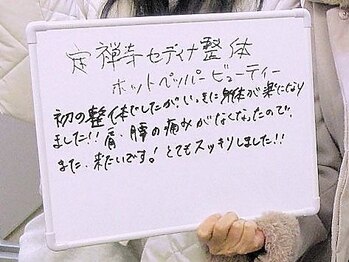 定禅寺セディナ整体
ホットペッパービューティー
初の整体でしたが、いっきに身体が楽になり
ました!!肩・腰の痛みがなくなったので、
また、来たいです!とてもスッキリしました!!